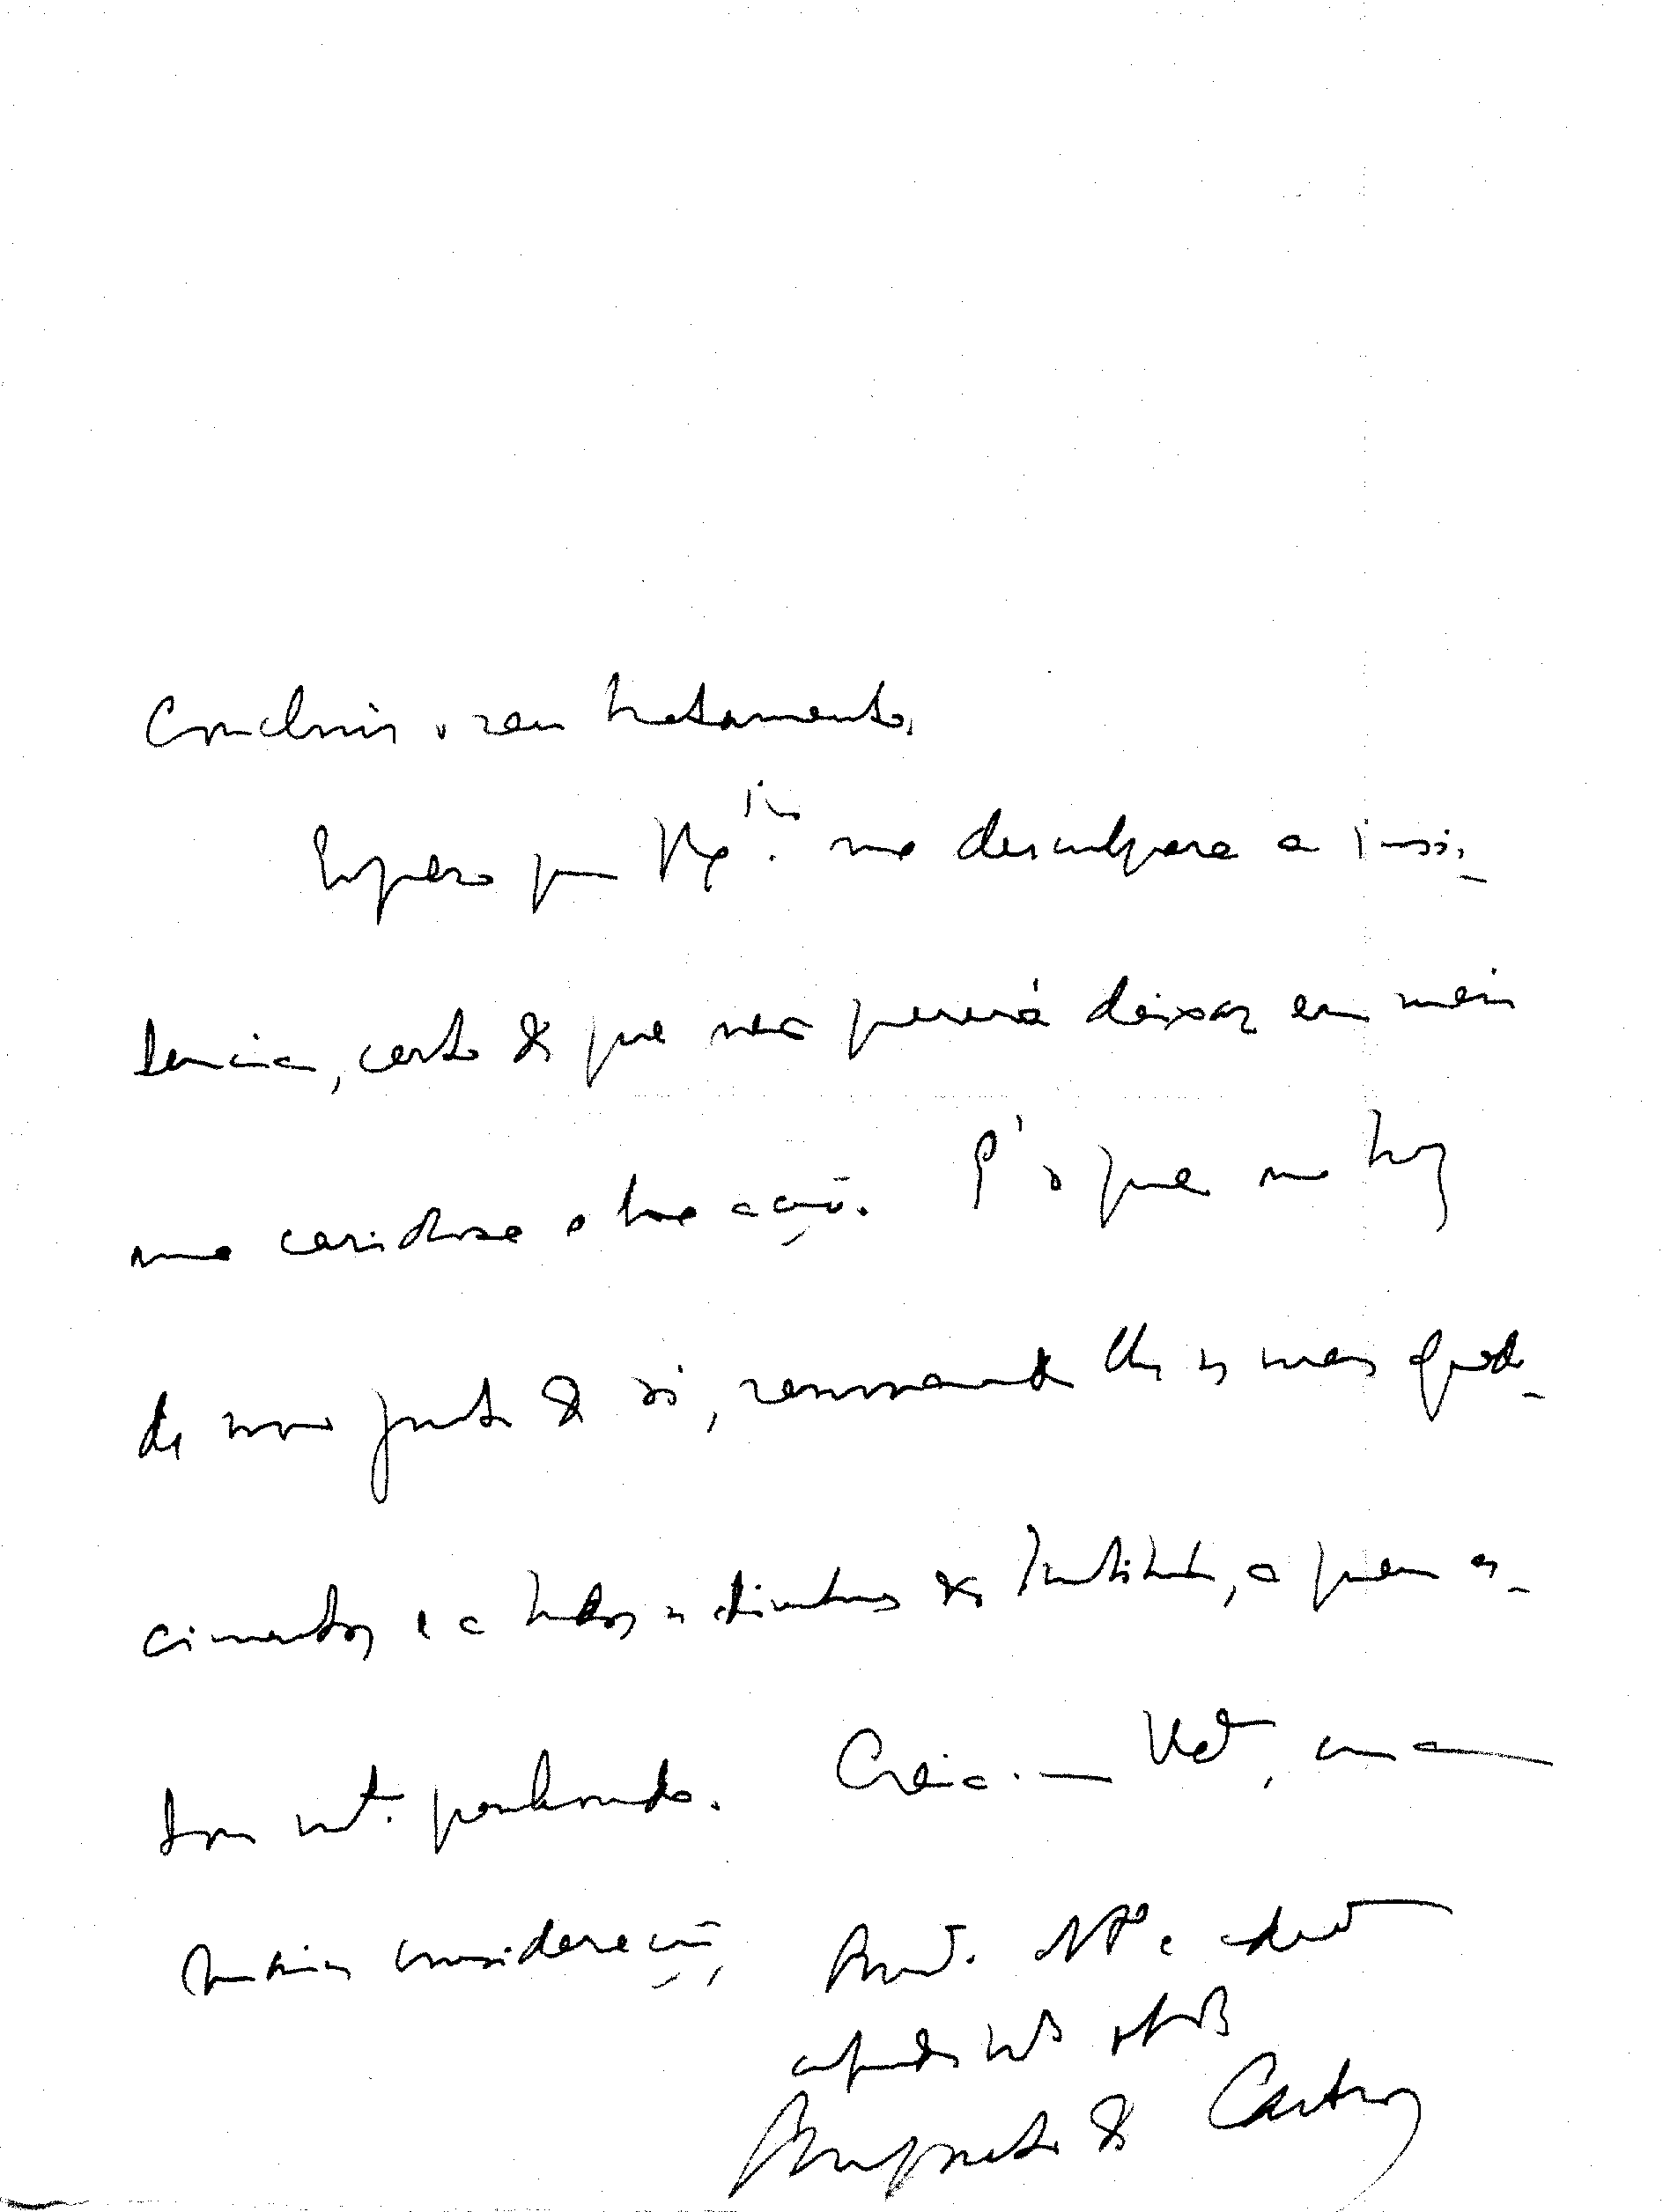 Concluir o seu tratamento.
Espero que V. Ex.ª me desculpará a insis-
tencia, certo de que não quererá deixar em meio
uma caridosa e boa acção. É o que me traz
de novo junto de si, renovando-lhe os meus agrade-
cimentos e a todos os directores do Instituto, a quem es-
tou mt.º penhorado. Creia-me V. Ex.ª, com a
maior consideração,
Augusto de Castro